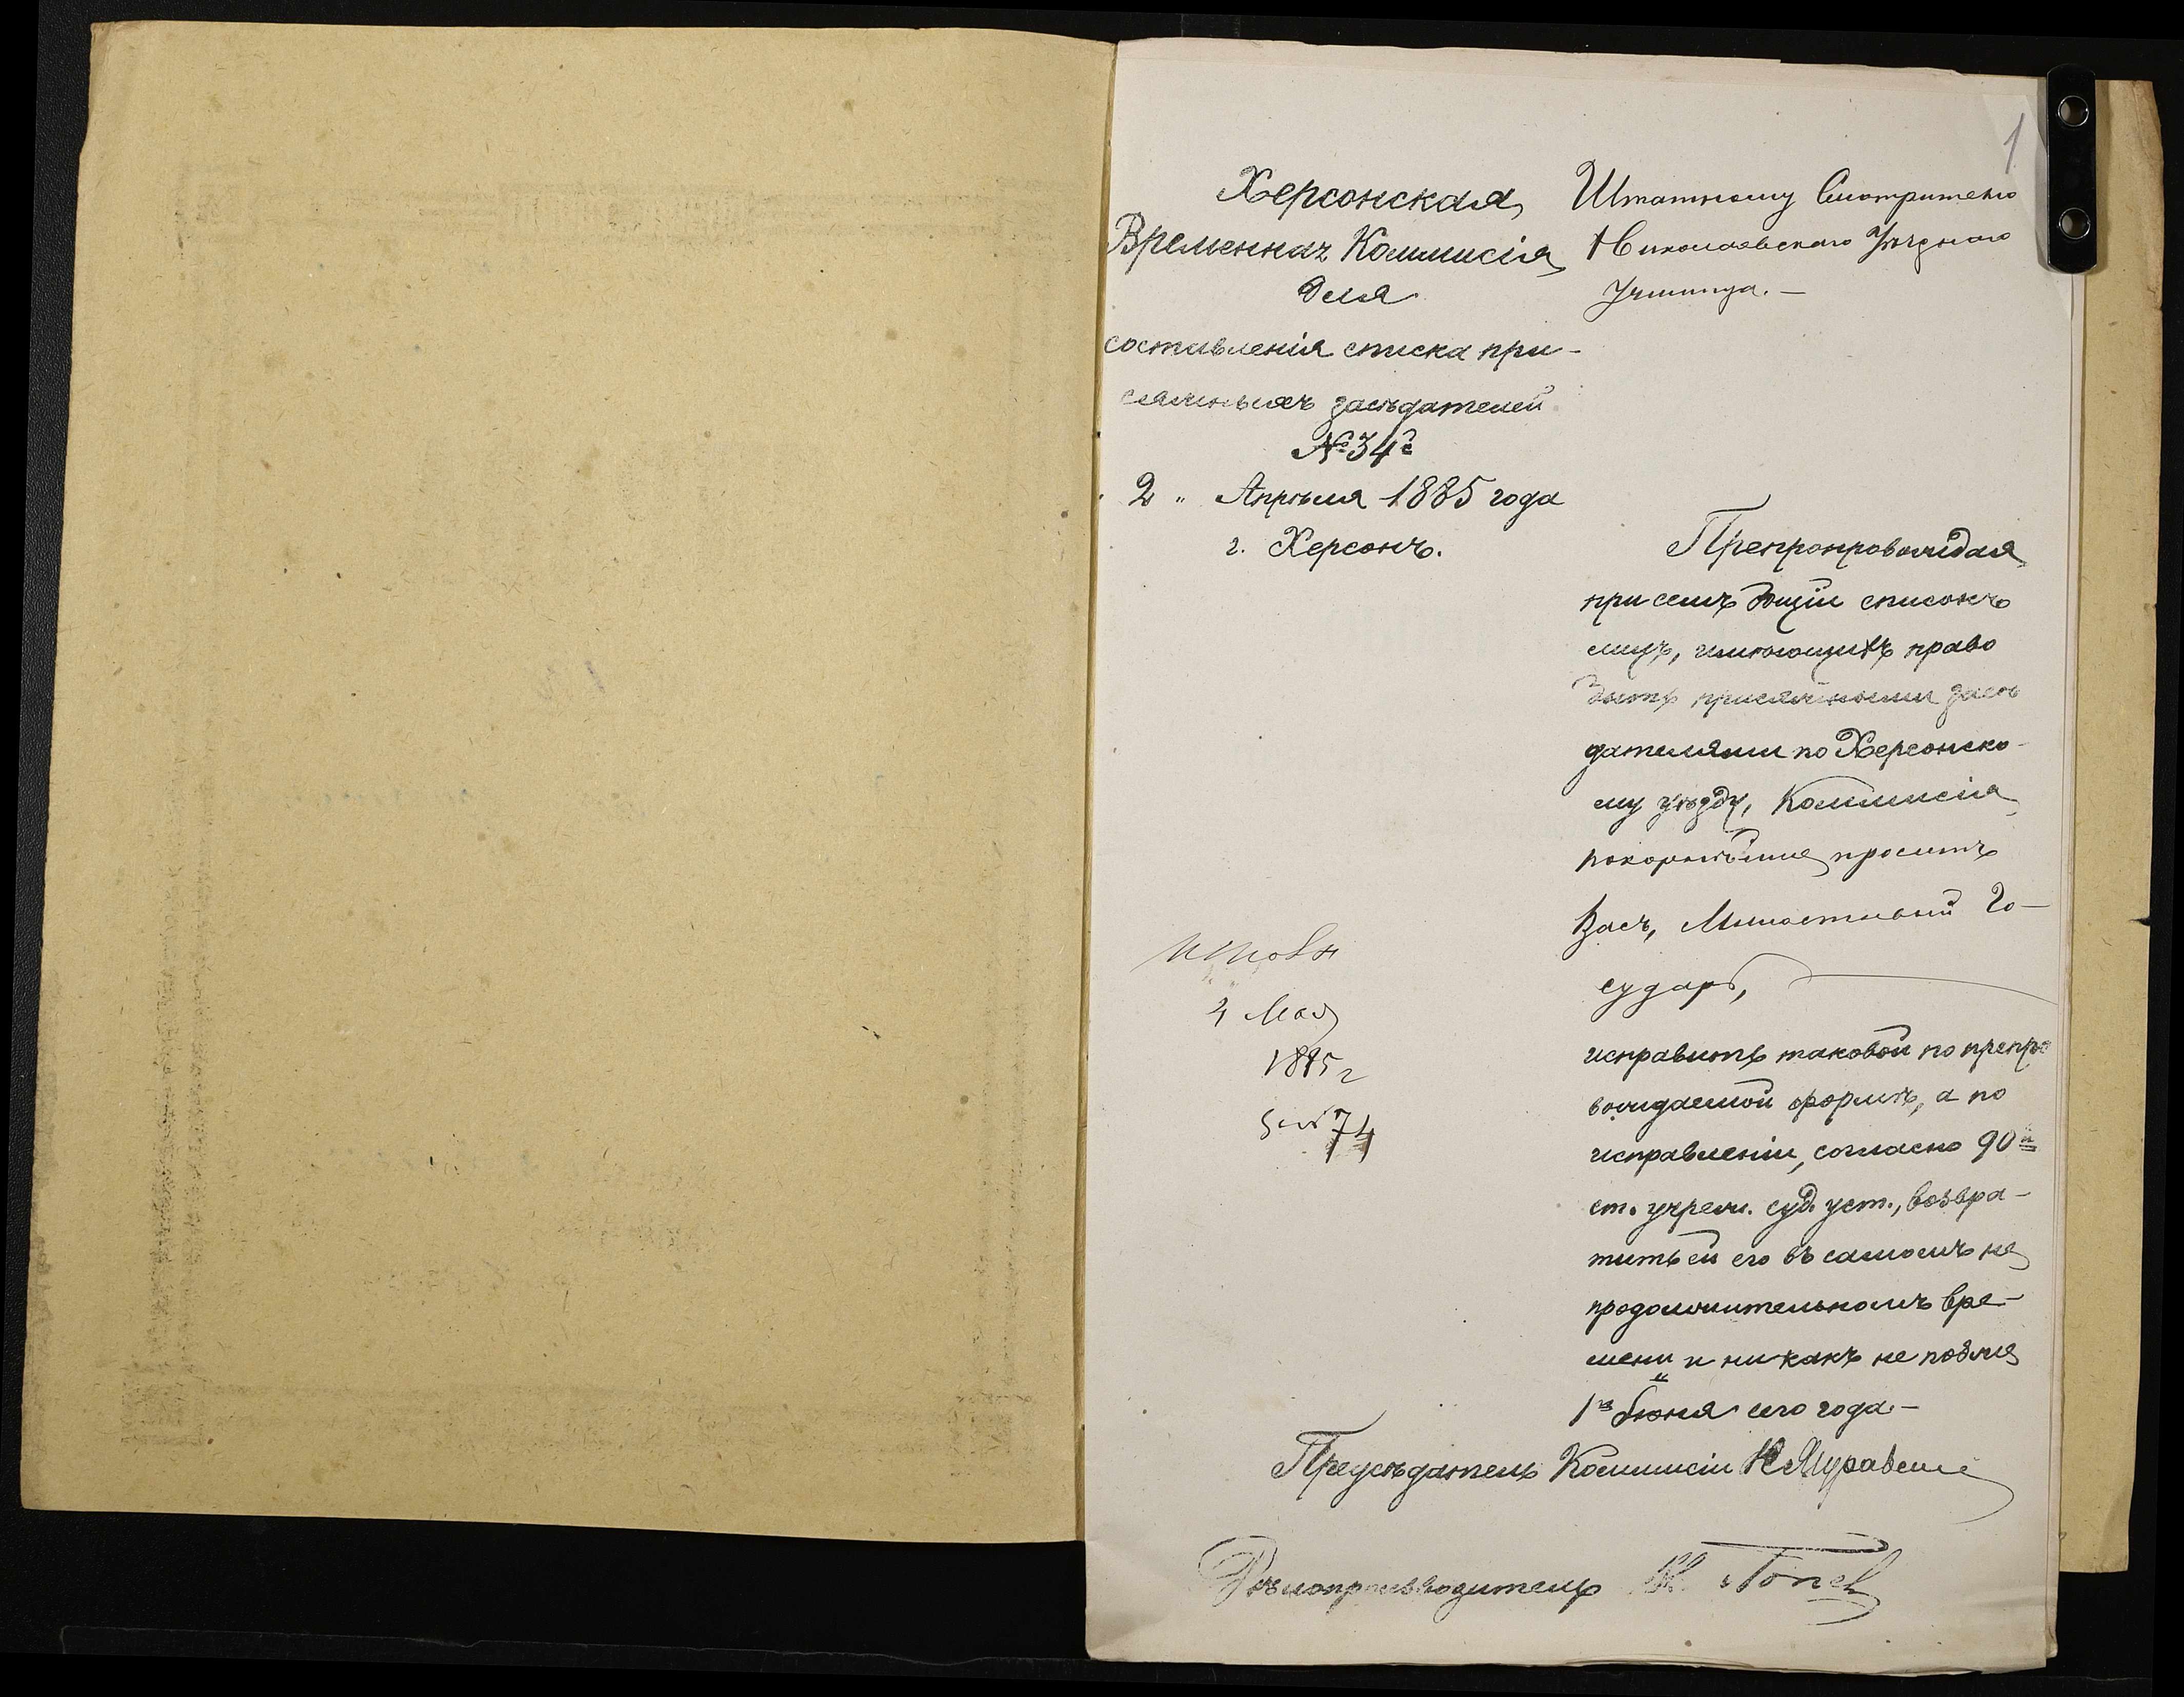 1
Херсонская
Временная Коммисія
для
составленія списка при-
сяжныхъ засѣдателей
№ 34
2 " Апрѣля 1885 года
г. Херсонъ.
Штатному Смотрителю
Николаевскаго Уѣзднаго
Училища. —
Препровождая
при семъ общій списокъ
лицъ, имѣющихъ право
быть присяжными засѣ
дателями по Херсонско-
му уѣзду, Коммисія
покорнѣйше проситъ
Васъ, Милостивый Го-
сударь,
исправить таковой по препро
вождаемой формѣ, а по
исправленіи, согласно 90й
ст. учреж. суд. уст., возвра-
тить ей его въ самомъ не
продолжительномъ вре-
мени и никакъ не позже
1го Іюня сего года. —
2 Мая
1885 г
74
Предсѣдатель Коммисіи
Дѣлопроизводитель